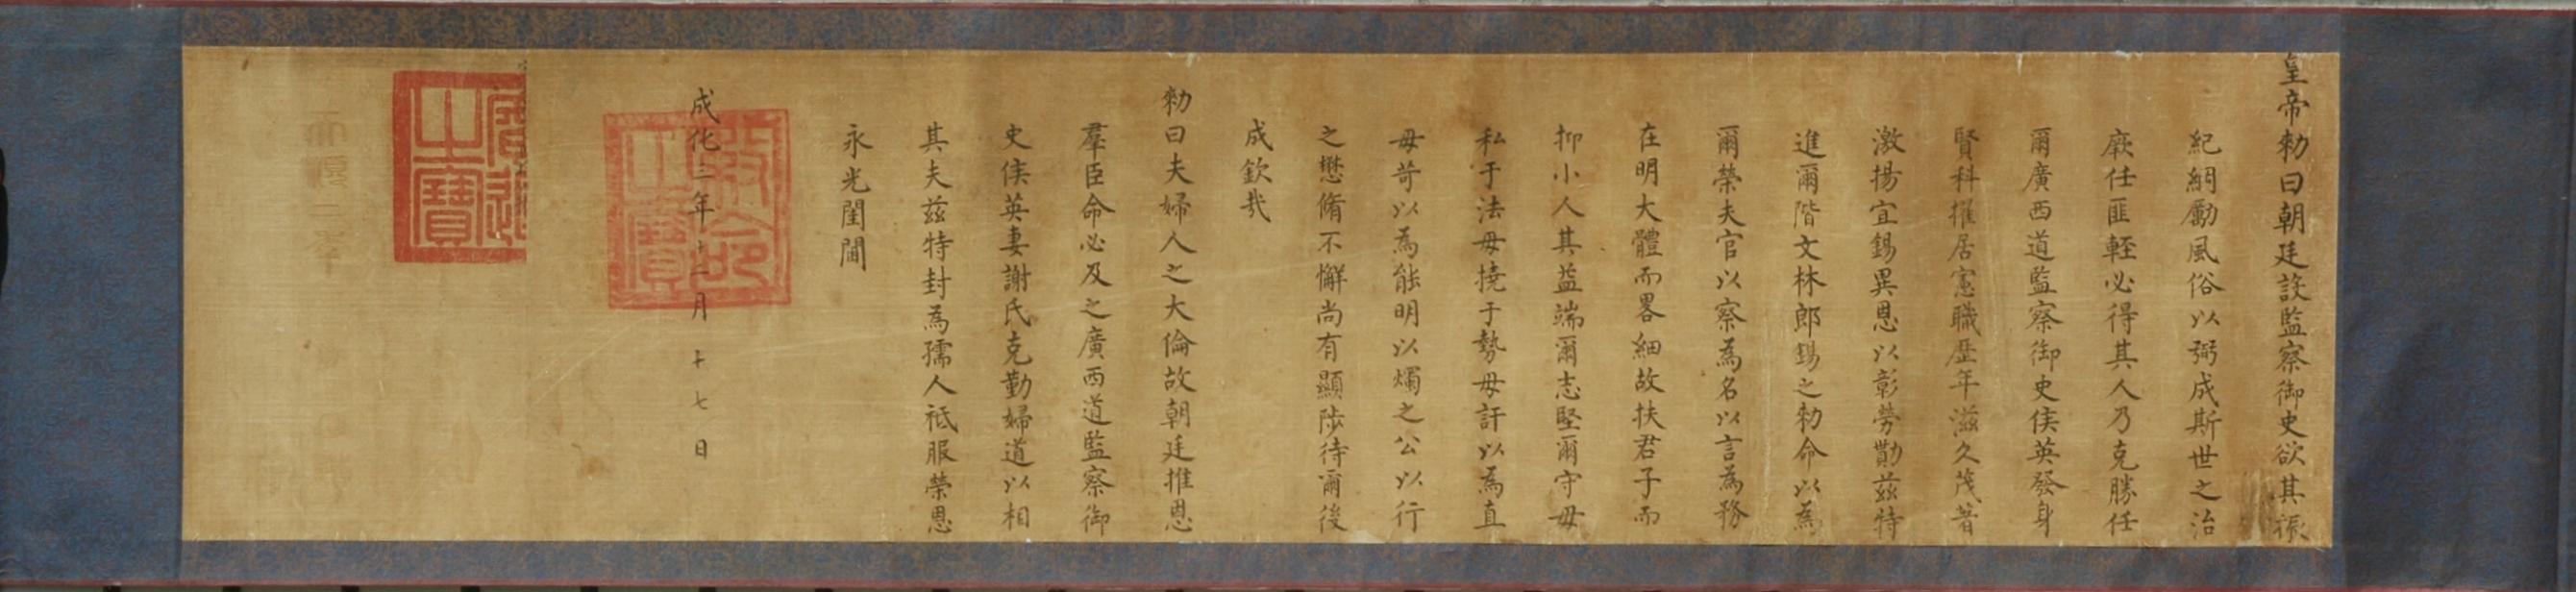 皇帝勑曰朝廷設監察御史欲其振
紀綱勵風俗以弼成斯世之治
厥任匪輕必得其人乃克勝任
爾廣西道監察御史侯英發身
賢科擢居憲職歷年滋久茂著
激揚宜錫異恩以彰勞勩茲特
進爾階文林郎錫之勑命以為
爾榮夫官以察為名以言為務
在明大體而畧細故扶君子而
抑小人其益端爾志堅爾守毋
私于法毋撓于勢毋訐以為直
毋苛以為能明以燭之公以行
之懋脩不懈尚有顯陟待爾後
成欽哉
勑曰夫婦人之大倫故朝廷推恩
羣臣命必及之廣西道監察御
史侯英妻謝氏克勤婦道以相
其夫茲特封為孺人祗服榮恩
永光閨閫
成化三年十一月十七日
敕命之寶
之寶